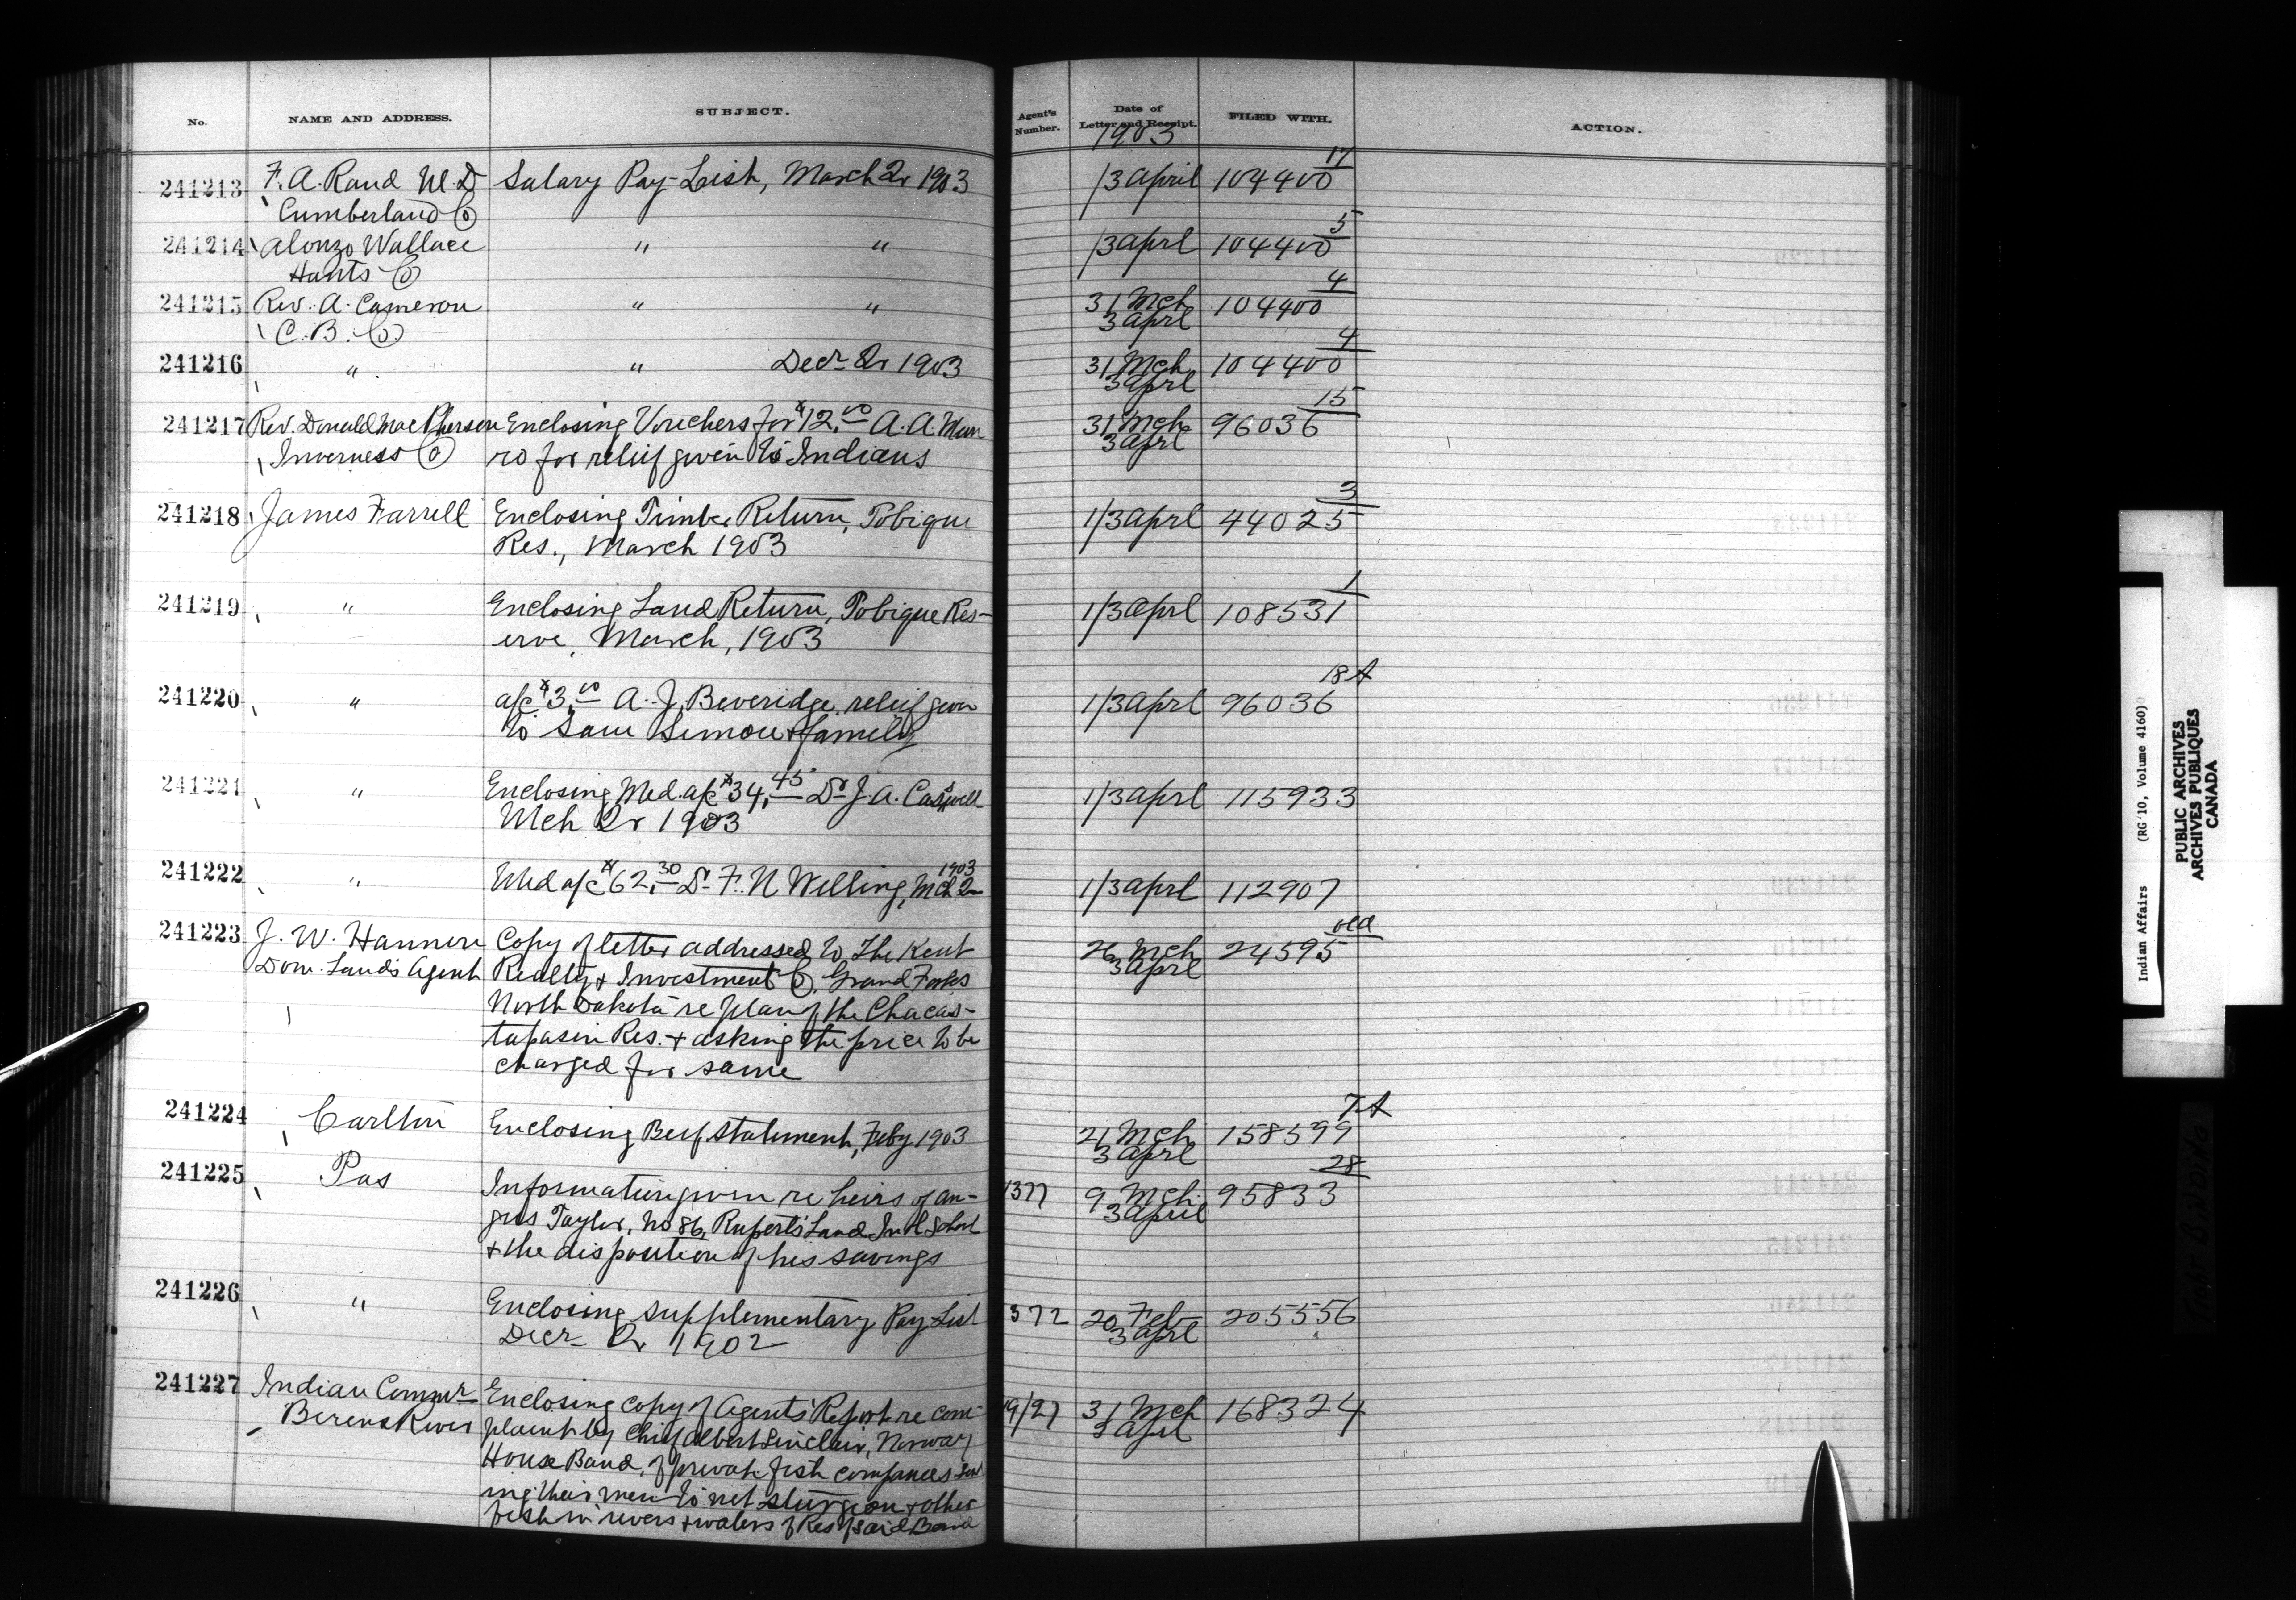 No.
NAME AND ADDRESS.
SUBJECT.
Agent's
Number.
Date of
Letter and Receipt.
FILED WITH.
ACTION.
1903
241213 F. A. Rand M.D Salary Pay-List, March Qr 1903 1/3 April 104400 17
Cumberland Co
241214 Alonzo Wallace " " 1/3 Aprl 104400 5
Hants Co
241215 Rev. A. Cameron " " 31 Mch 104400 4
C. B. Co. 3 Aprl
241216 " " Decr Qr 1903 31 Mch 104400 4
3 Aprl
241217 Rev. Donald MacPherson Enclosing Vouchers for $12.00 A. A. Mun 31 Mch 96036 15
Inverness Co ro for relief given to Indians 3 Aprl
241218 James Farrell Enclosing Timber Return, Tobique 1/3 Aprl 44025 3
Res., March 1903
241219 " Enclosing Land Return, Tobique Res- 1/3 Aprl 108531 1
erve, March, 1903
241220 " a/c $3.00 A. J. Beveridge relief given 1/3 Aprl 96036 18A
to Sam Simon & family
241221 " Enclosing Med. a/c $34.45 Dr J. A. Caswell 1/3 Aprl 115933
Mch Qr 1903
241222 " Med a/c $62.30 Dr F. N Welling, Mch Qr 1903 1/3 Aprl 112907
241223 J. W. Hannon Copy of letter addressed to The Kent 26 Mch 24595 old
Dom. Lands Agent Realty & Investment Co. Grand Forks 3 Aprl
North Dakota re plan of the Chacas-
tapasin Res. & asking the price to be
charged for same
241224 Carlton Enclosing Beef statement, Feby 1903 21 Mch 158599 7A
3 Aprl
241225 Pas Information given re heirs of An- 1377 9 Mch 95833 28
gus Taylor, No 86, Rupert's Land Indl School 3 April
& the disposition of his savings
241226 " Enclosing supplementary Pay-List 1372 20 Feb 205556
Decr Qr 1902 3 Aprl
241227 Indian Commr Enclosing copy of Agents' Report re com- 19/27 31 Mch 168324
Berens River plaint by Chief Albert Sinclair, Norway 3 Aprl
House Band, of private fish companies send
ing their men to net sturgeon & other
fish in rivers & waters of Res of said Band
Indian Affairs (RG 10, Volume 4160)
PUBLIC ARCHIVES
ARCHIVES PUBLIQUES
CANADA